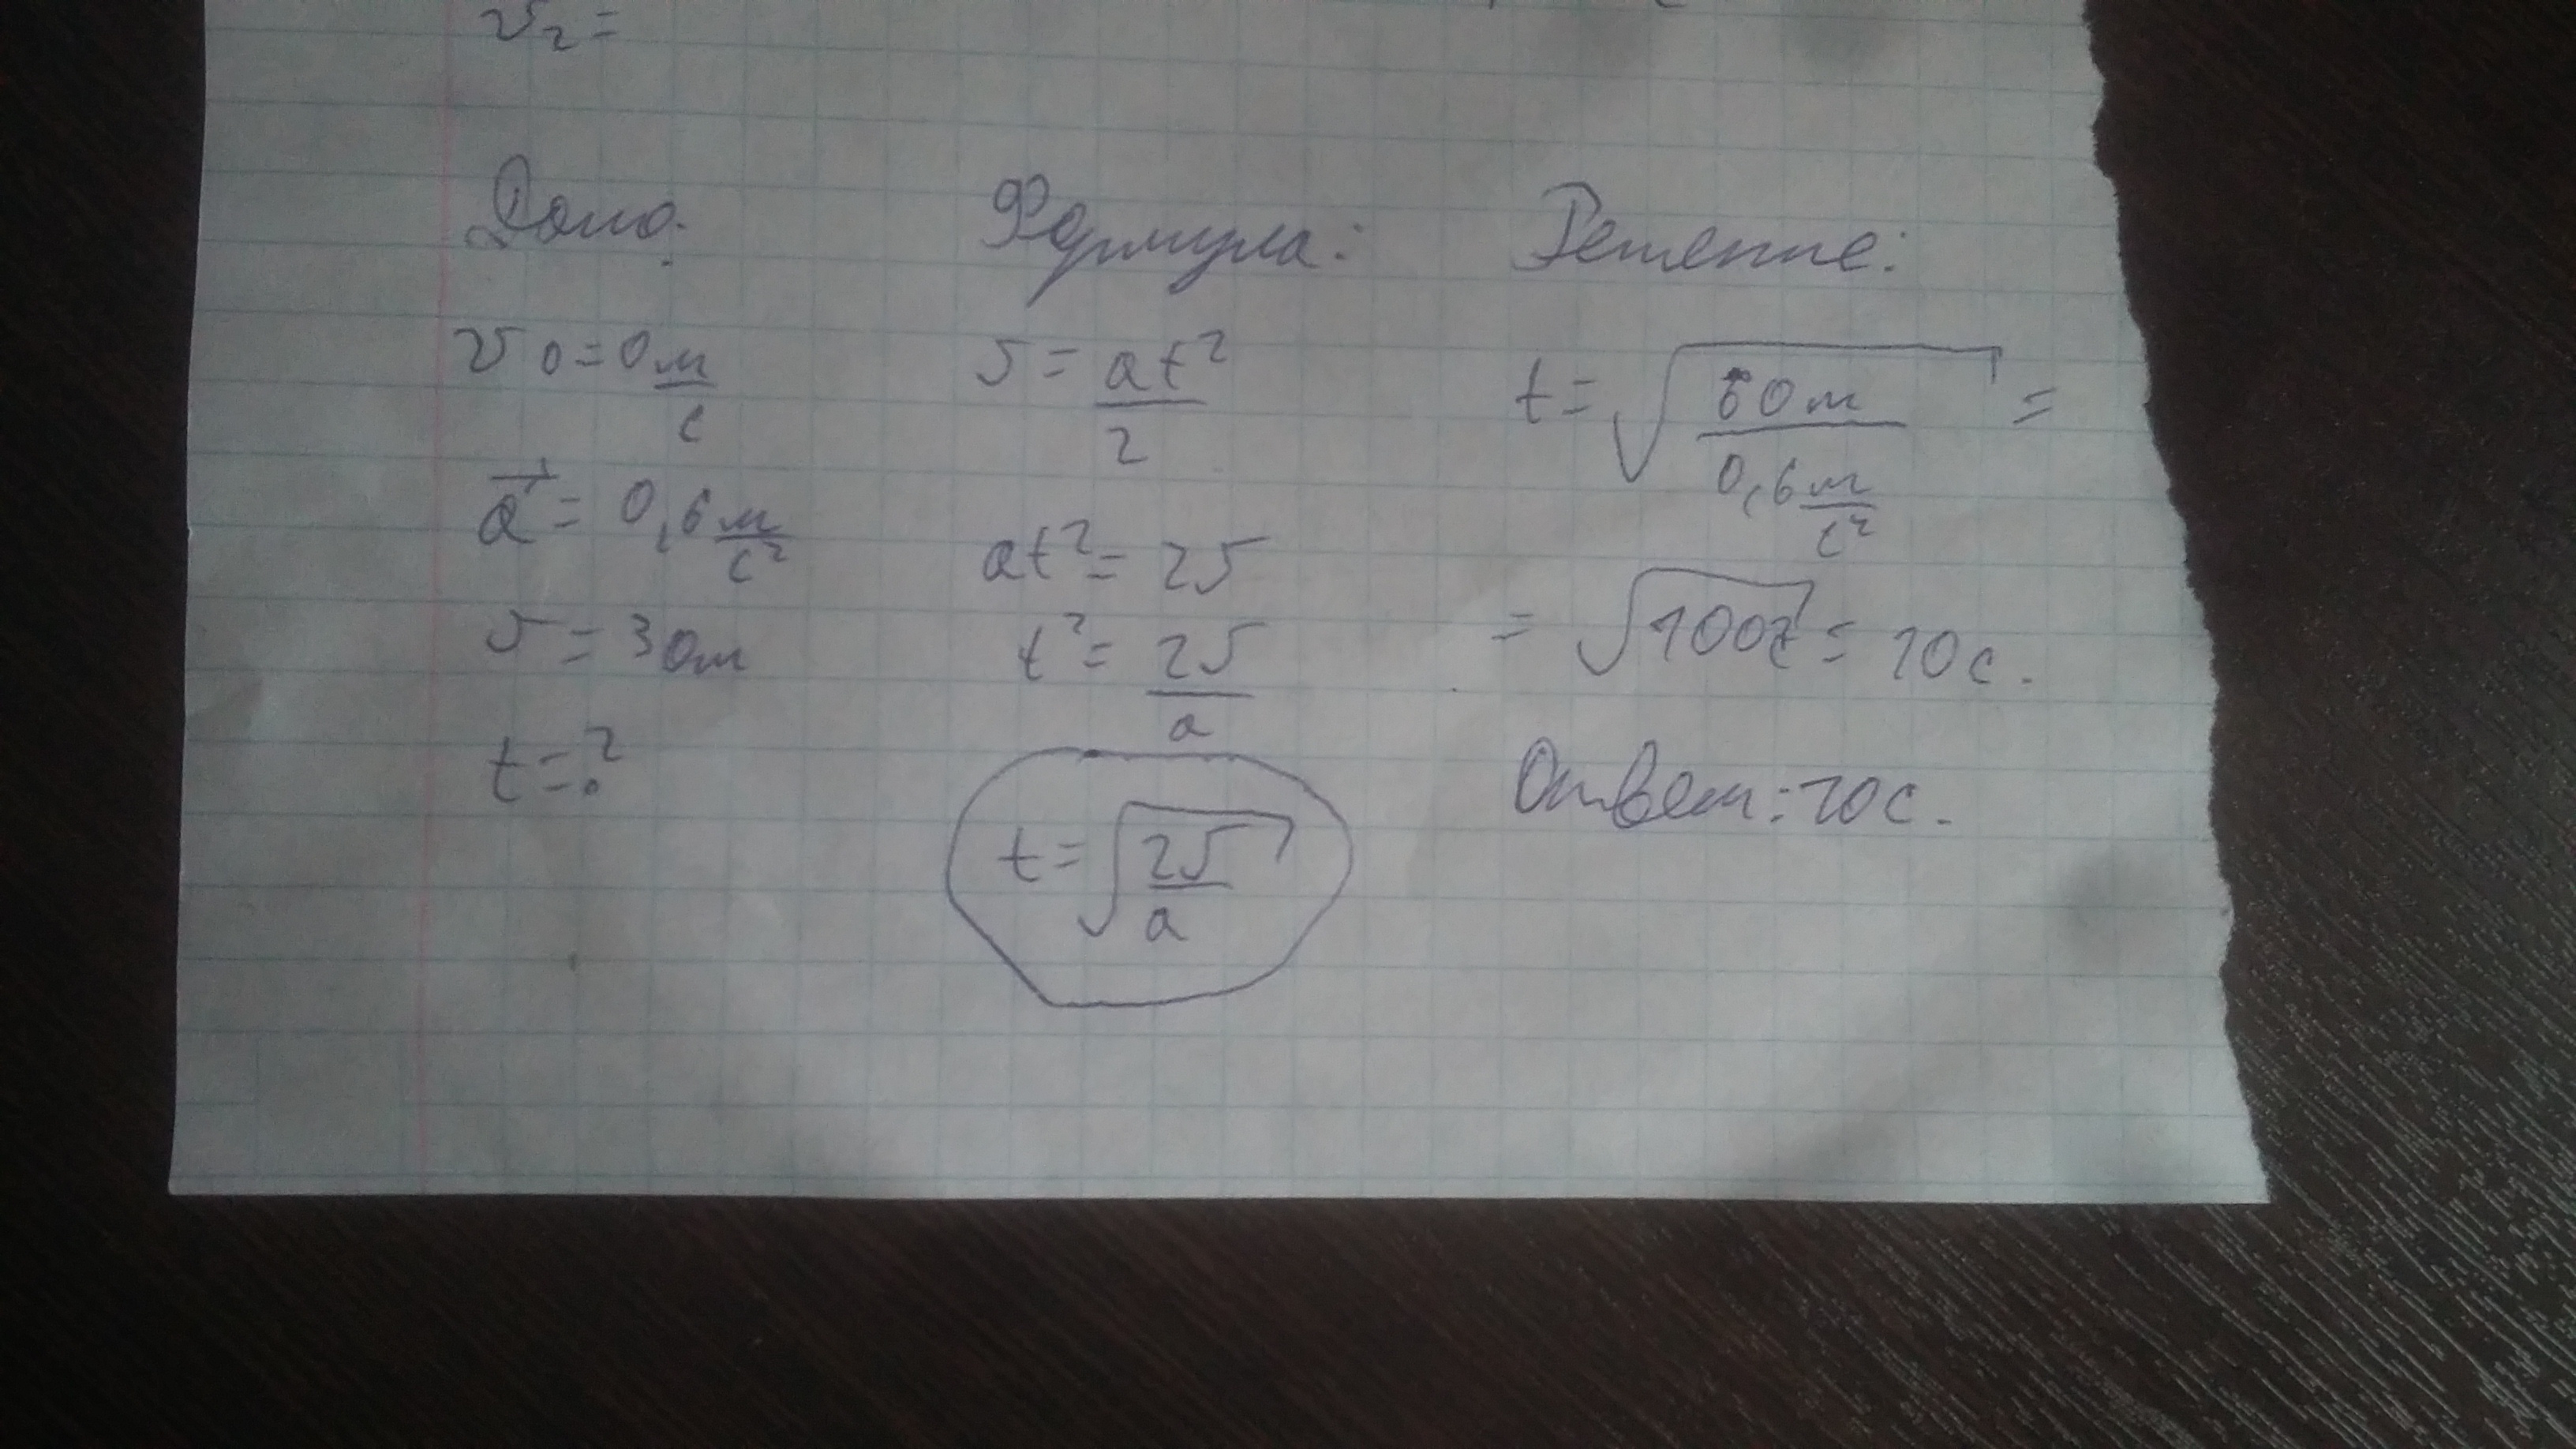 v₂ =
Дано:
v₀ = 0 м/с
a⃗ = 0,6 м/с²
S = 30м
t = ?
Формула:
S = at²/2
at² = 2S
t² = 2S/a
t = √(2S/a)
Решение:
t = √(60м / 0,6 м/с²) =
= √100с² = 10с.
Ответ: 10с.